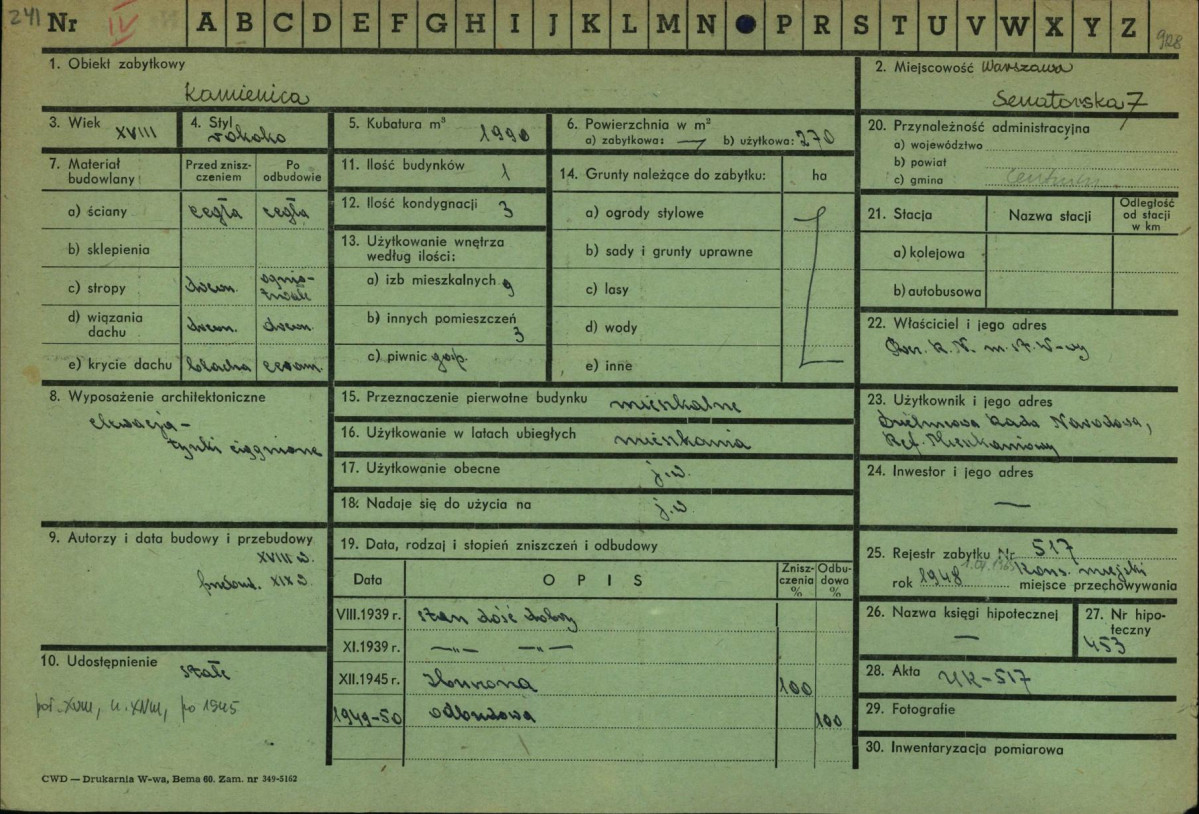 241 Nr IV A B C D E F G H I J K L M N P R S T U V W X Y Z 928
1. Obiekt zabytkowy
Kamienica
2. Miejscowość Warszawa
Senatorska 7
3. Wiek XVIII
4. Styl rokoko
5. Kubatura m³ 1990
6. Powierzchnia w m²
a) zabytkowa: — b) użytkowa: 270
7. Materiał budowlany
Przed zniszczeniem
Po odbudowie
a) ściany cegła cegła
b) sklepienia
c) stropy drewn. ognio-
trwałe
d) wiązania dachu drewn. drewn.
e) krycie dachu blacha ceram.
8. Wyposażenie architektoniczne
elewacja -
tynki ciągnione
9. Autorzy i data budowy i przebudowy
XVIII w.
przebud. XIX w.
10. Udostępnienie
stałe
poł. XVIII, k. XVIII, po 1945
11. Ilość budynków 1
12. Ilość kondygnacji 3
13. Użytkowanie wnętrza
według ilości:
a) izb mieszkalnych 9
b) innych pomieszczeń 3
c) piwnic gosp.
14. Grunty należące do zabytku: ha
a) ogrody stylowe
b) sady i grunty uprawne
c) lasy
d) wody
e) inne
15. Przeznaczenie pierwotne budynku mieszkalne
16. Użytkowanie w latach ubiegłych mieszkania
17. Użytkowanie obecne j.w.
18. Nadaje się do użycia na j.w.
19. Data, rodzaj i stopień zniszczeń i odbudowy
Data O P I S Zniszczenia % Odbudowa %
VIII.1939 r. stan dość dobry
XI.1939 r. —„— —„—
XII.1945 r. zburzona 100
1949-50 odbudowa 100
20. Przynależność administracyjna
a) województwo
b) powiat
c) gmina Centrum
21. Stacja Nazwa stacji Odległość od stacji w km
a) kolejowa
b) autobusowa
22. Właściciel i jego adres
R. N. m. st. W-wy
23. Użytkownik i jego adres
Dzielnicowa Rada Narodowa,
Ref. Mieszkaniowy
24. Inwestor i jego adres
—
25. Rejestr zabytku Nr 517
rok 1948 Kons. miejski
miejsce przechowywania
26. Nazwa księgi hipotecznej
—
27. Nr hipoteczny
453
28. Akta UK-517
29. Fotografie
30. Inwentaryzacja pomiarowa
CWD — Drukarnia W-wa, Bema 60. Zam. nr 349-5162